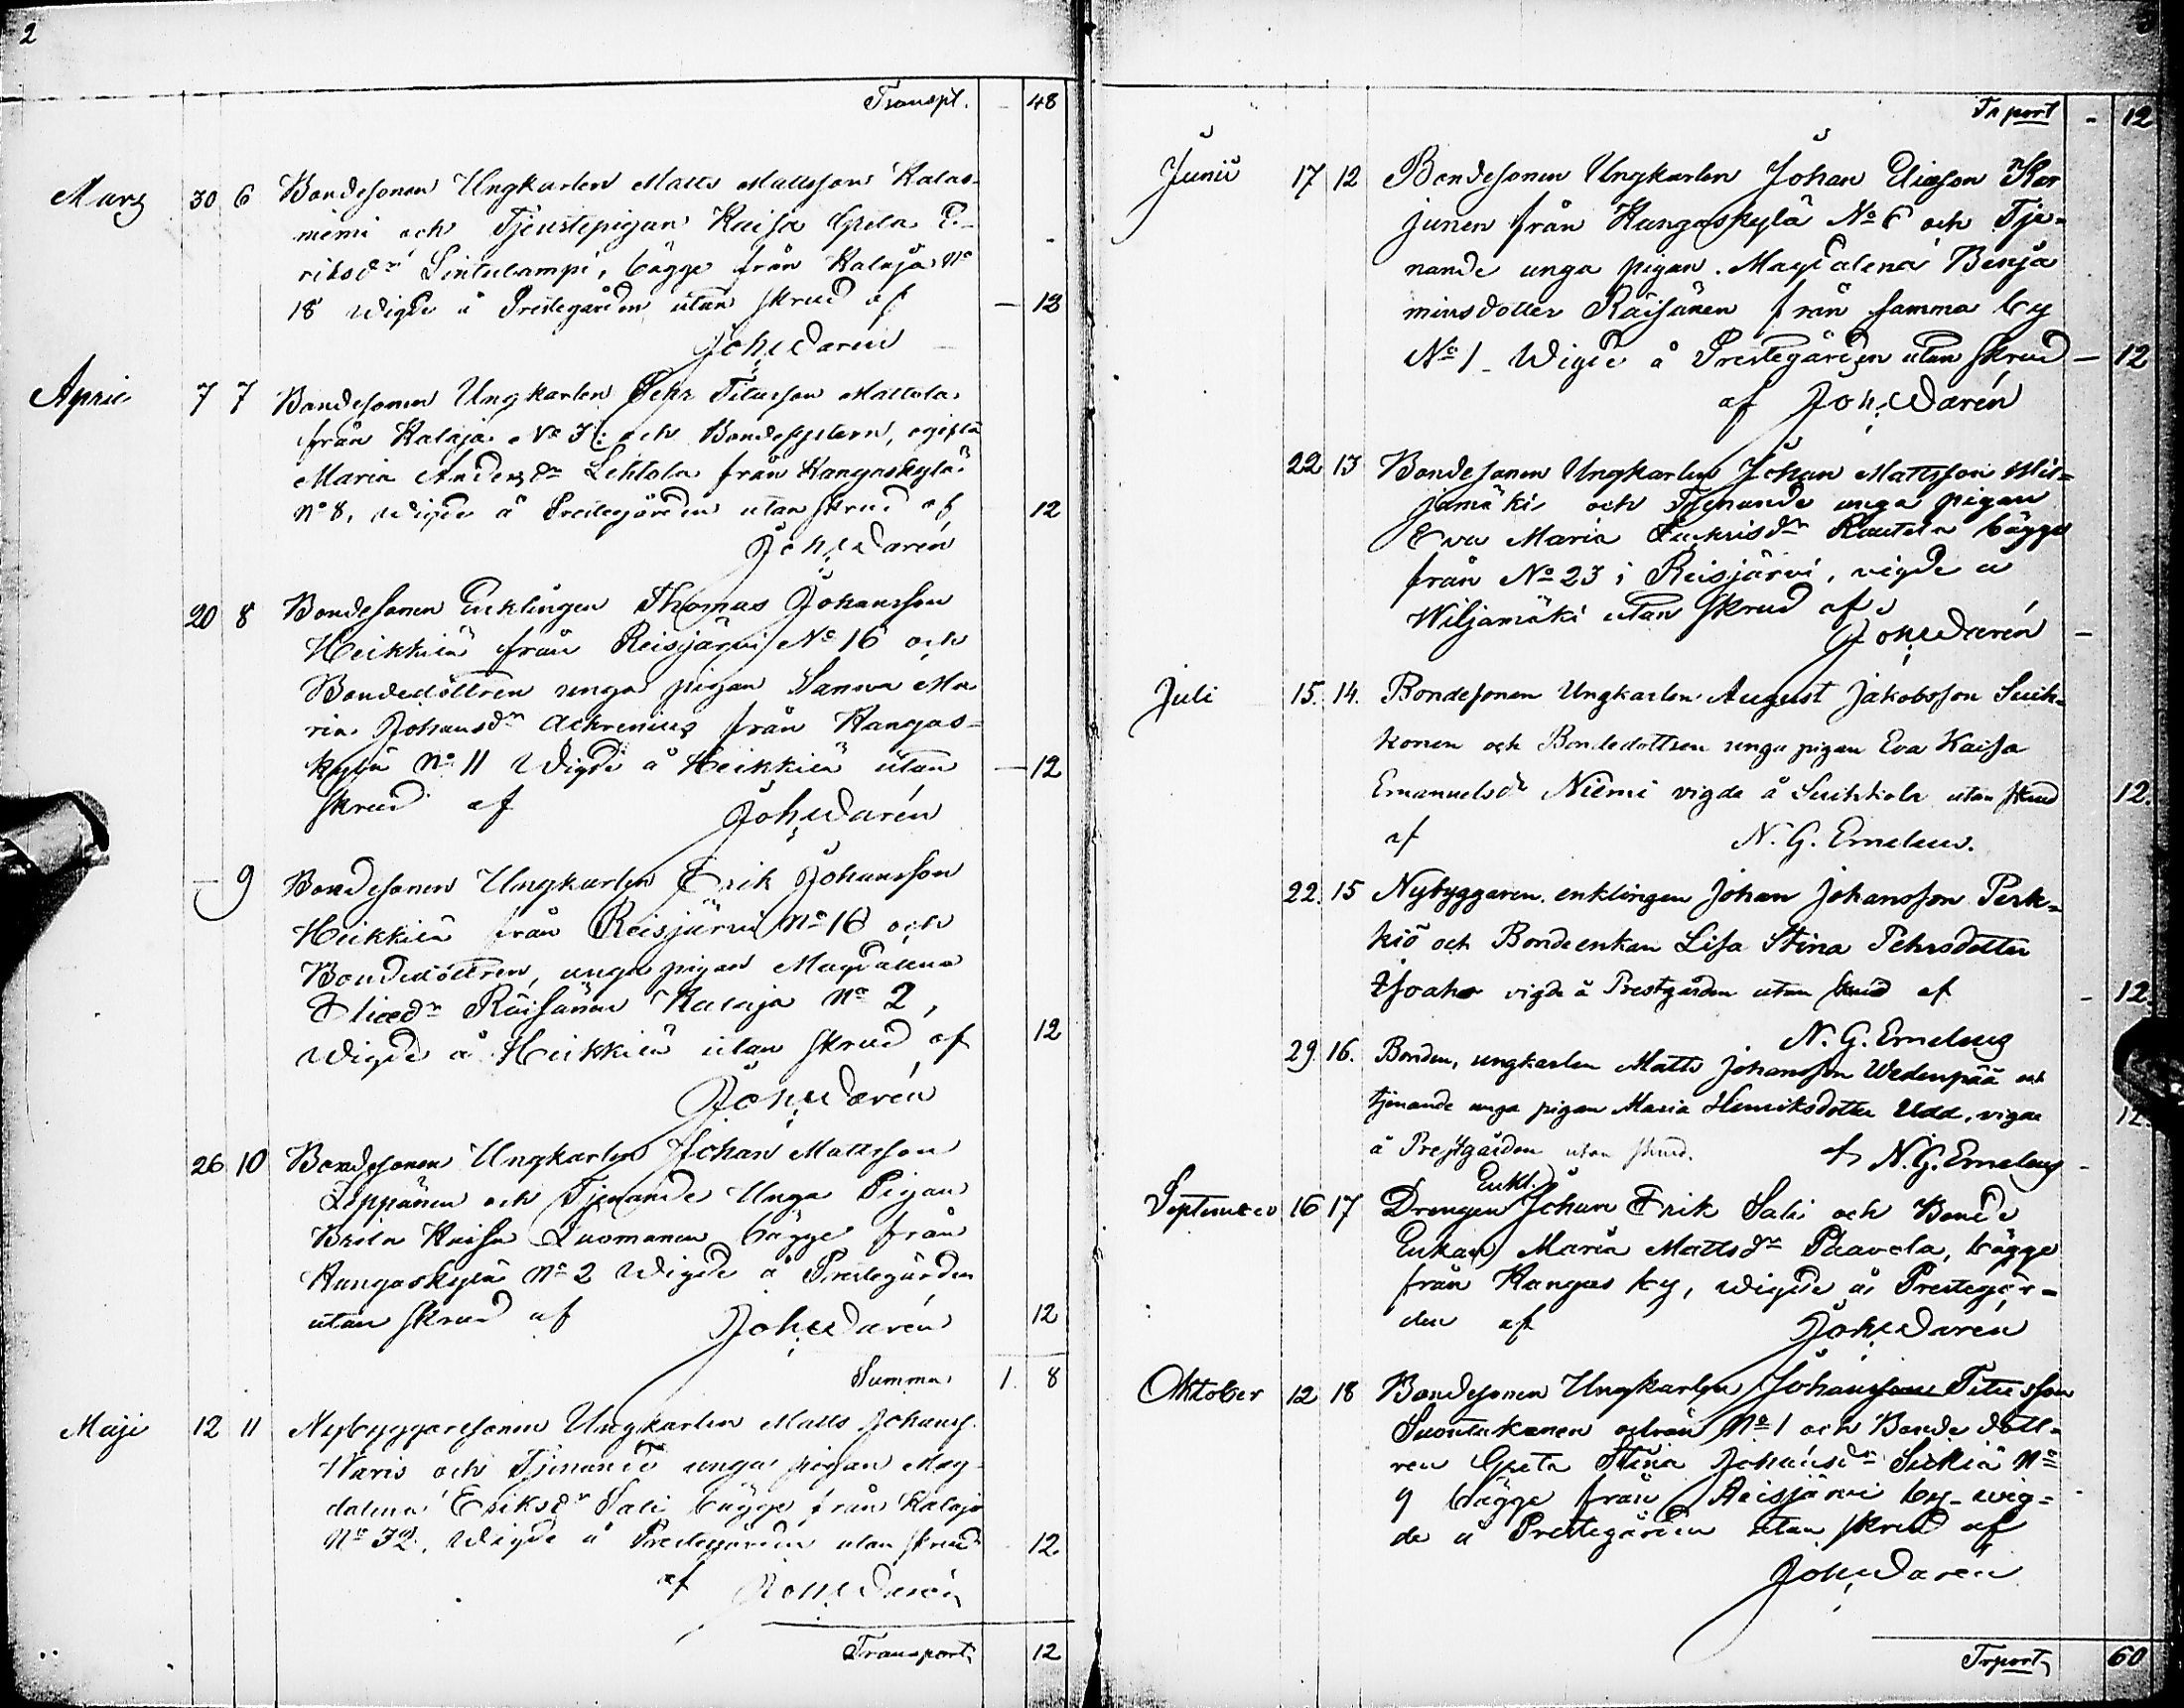 2
Transpt. - 48
Mars 30 6 Bondesonen Ungkarlen Matts Mattsson Kalas-
niemi och Tjenstepigan Kaisa Greta E-
riksdr Lintulampi, bägge från Kalaja No
18 Wigde å Prestegården utan skrud af — 12
Joh. Warén
April 7 7 Bondesonen Ungkarlen Pehr Titusson Mattola
från Kalaja No 3 och Bondesystern, ogifta
Maria Andersdr Lehtola från Kangaskylä
No 8, Wigde å Prestegården utan skrud af 12
Joh. Warén
20 8 Bondesonen Enklingen Thomas Johansson
Heikkilä från Reisjärvi No 16 och
Bondedottren unga pigan Sanna Ma
ria Johansdr Ackrenius från Kangas-
kylä No 11 Wigde å Heikkilä utan — 12
skrud af Joh. Warén
— 9 Bondesonen Ungkarlen Erik Johansson
Heikkilä från Reisjärvi No 16 och
Bondedottren, unga pigan Magdalena
Eliædr Räisänen Kalaja No 2,
Wigde å Heikkilä utan skrud af 12
Joh. Warén
26 10 Bondesonen Ungkarlen Johan Mattsson
Leppänen och Tjenande Unga Pigan
Brita Kaisa Luomanen bägge från
Kangaskylä No 2 Wigde å Prestegården
utan skrud af Joh. Warén 12
Summa 1. 8
Maji 12 11 Nybyggaresonen Ungkarlen Matts Johanss.
Waris och Tjenande unga pigan Mag-
dalena Eriksdr Sali bägge från Kalaja
No 32, Wigde å Prestegården utan skrud 12.
af Joh. Warén
Transport, 12
Trport - 12
Junii 17 12 Bondesonen Ungkarlen Johan Eliasson Kor
junen från Kangaskylä No 6 och Tje-
nande unga pigan Magdalena Benja
minsdotter Räisänen från samma by
No 1 Wigde å Prestegården utan skrud — 12
af Joh. Warén
22 13 Bondesonen Ungkarlen Johan Mattsson Wil-
jamäki och Tjenande unga pigan
Eva Maria Zackrisdr Rautela bägge
från No 23 i Reisjärvi, vigde å
Wiljamäki utan skrud af
Joh. Warén —
Juli 15. 14. Bondesonen Ungkarlen August Jakobsson Suik-
konen och Bondedottren unga pigan Eva Kaisa
Emanuelsdr Niemi vigda å Suikkola utan skrud 12.
af N. G. Ernelius.
22. 15 Nybyggaren enklingen Johan Johansson Perk-
kiö och Bondeenkan Lisa Stina Pehrsdotter
Isoaho vigda å Prestgården utan skrud af - 12.
N. G. Ernelius
29. 16. Bonden, ungkarlen Matts Johansson Wedenpää och
tjenande unga pigan Maria Henriksdotter Udd, vigda 12.
å Prestgården utan skrud. af N. G. Ernelius -
Enkl.
September 16 17 Drengen Johan Erik Sali och Bonde
Enkan Maria Mattsdr Paavola, bägge
från Kangas by, Wigde å Prestegår-
den af Joh. Warén
Oktober 12 18 Bondesonen Ungkarlen Johansson Titusson
Suontakanen No 1 och Bonde dott-
ren Greta Stina Johansdr Sickiä No
9 bägge från Reisjärvi by wig-
de å Prestegården utan skrud af
Joh. Warén
Trport, 60